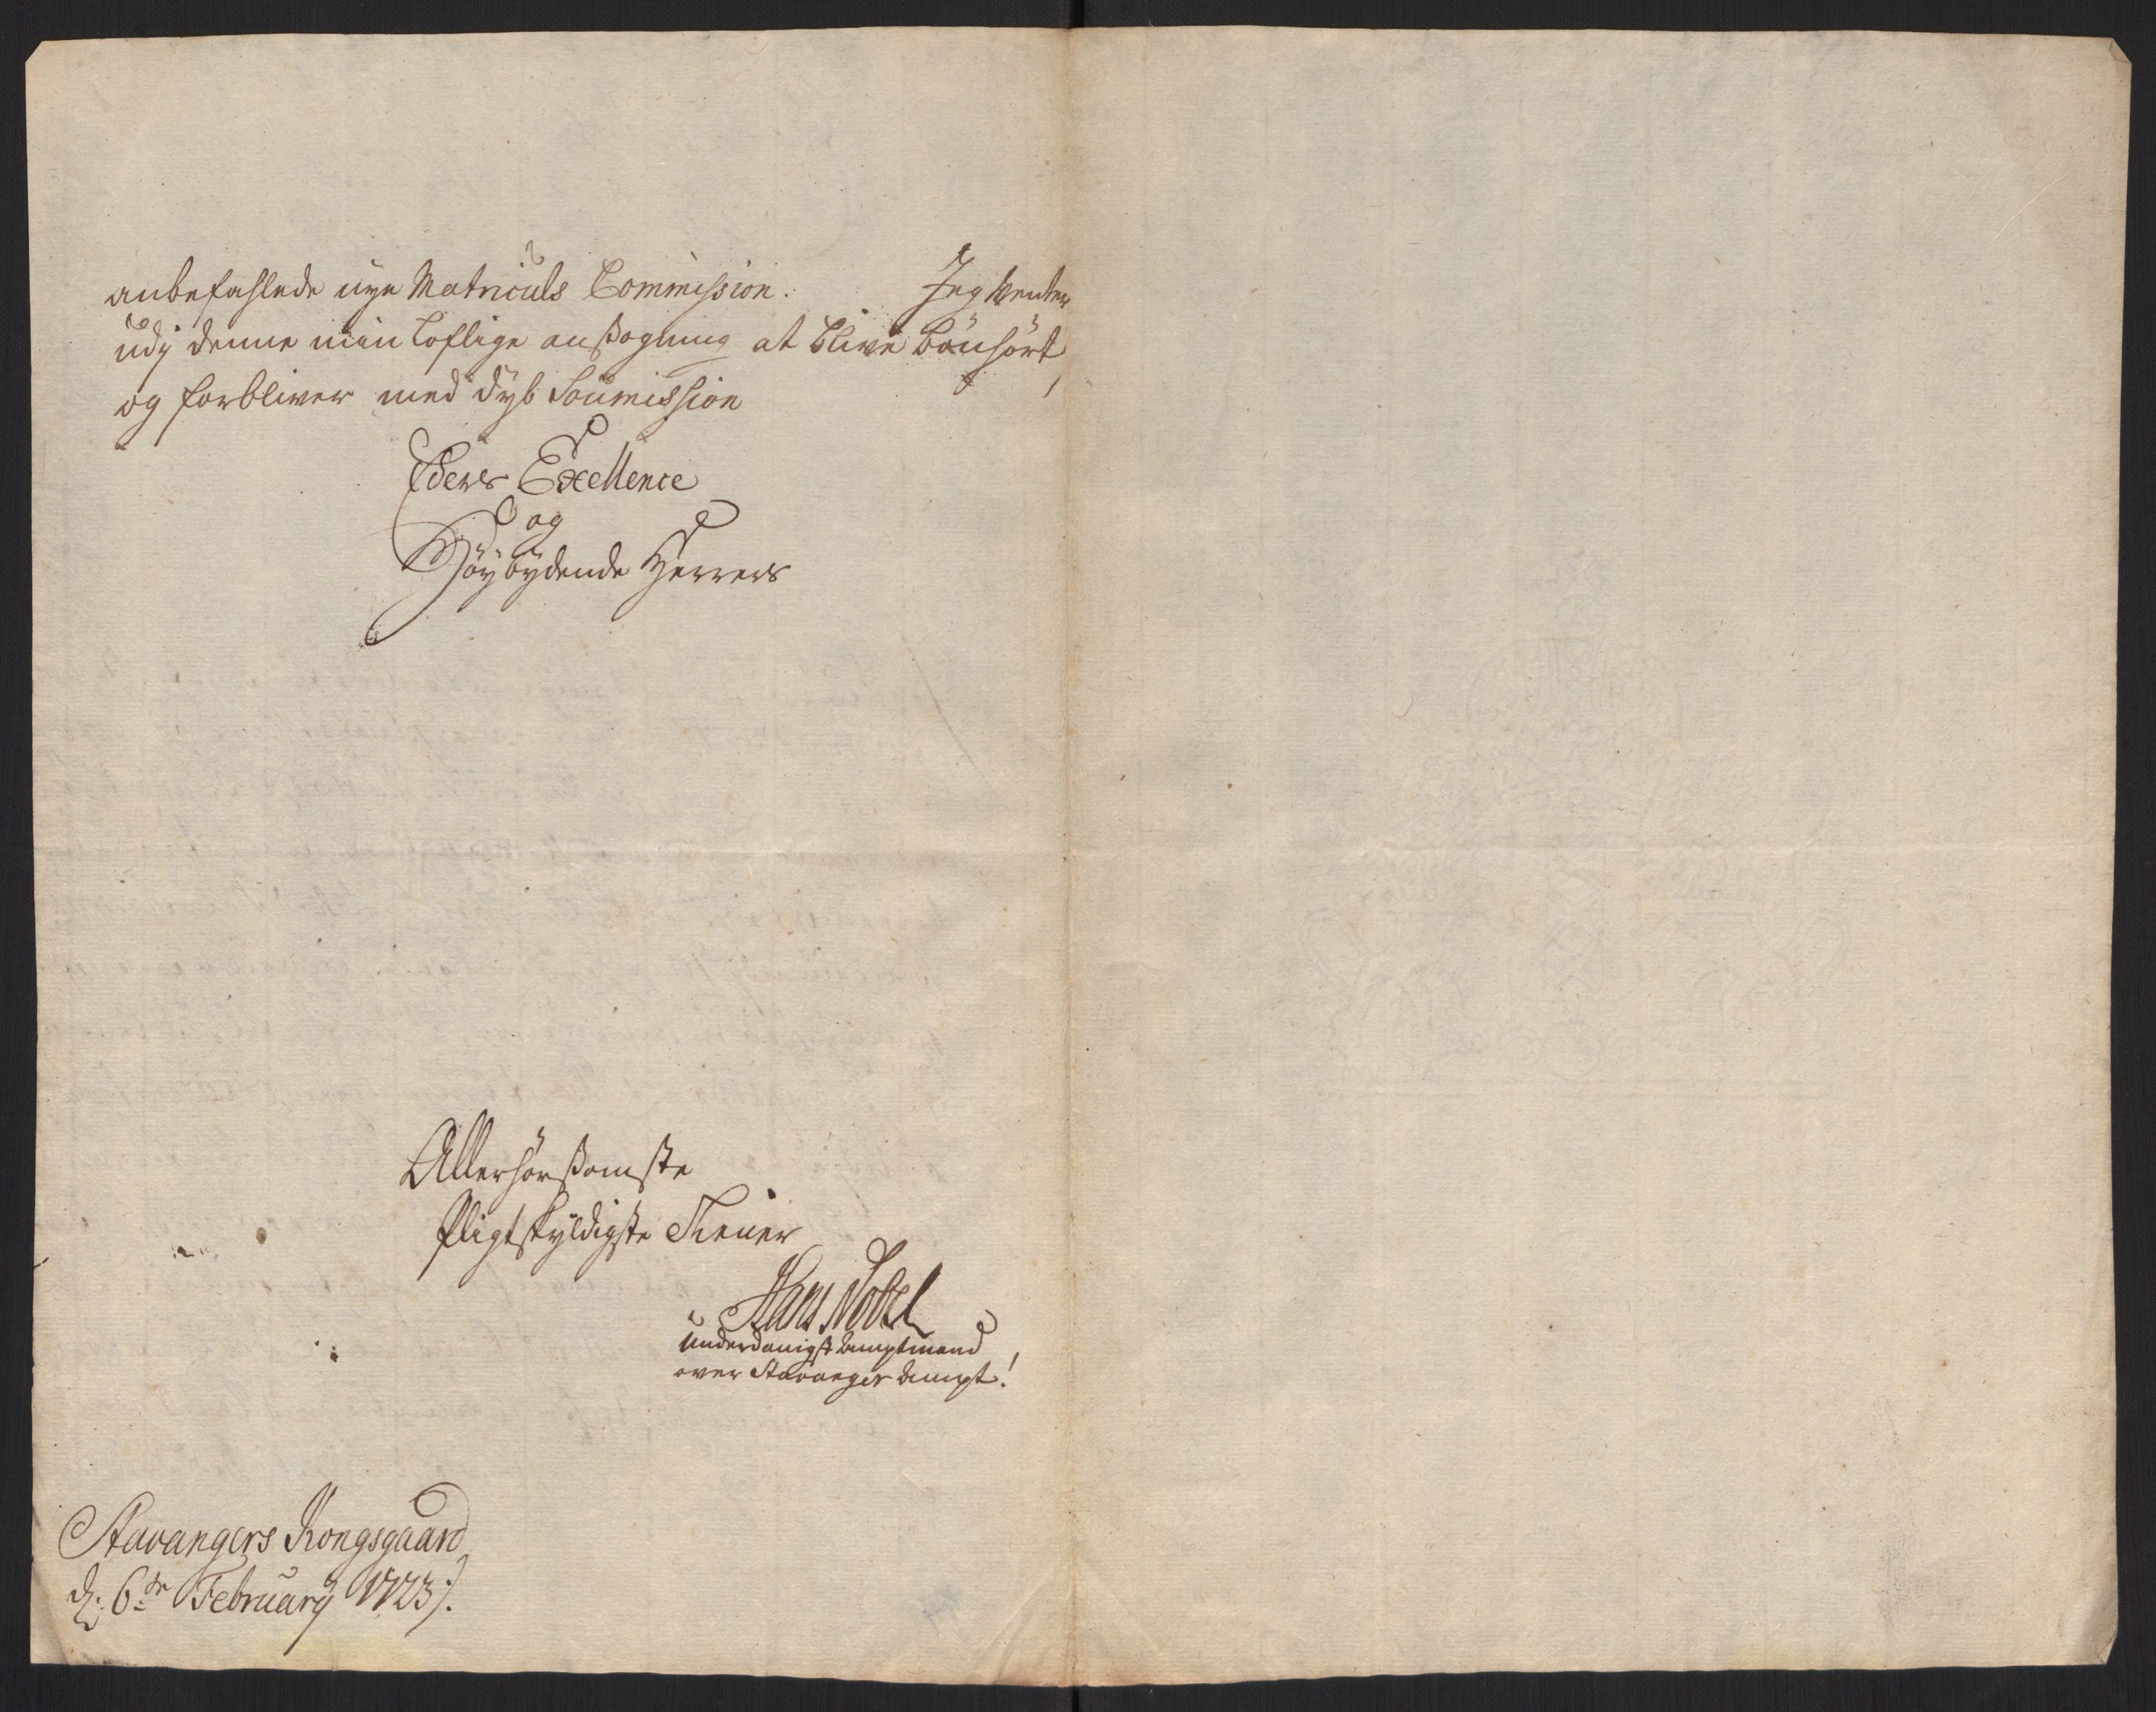 anbefahlede nye Matriculs Commission. Jeg venter
udj denne min loflige ansøgning at blive bönhört,
og forbliver med dyb Soumission
Eders Excellence
og
Höybydende Herrers
Allerhörsomste
Pligtskyldigste Tiener
Hans Nobel
Underdanigst Amptmand
over Stavanger Ampt!
Stavangers Kongsgaard
d: 6te February 1723.